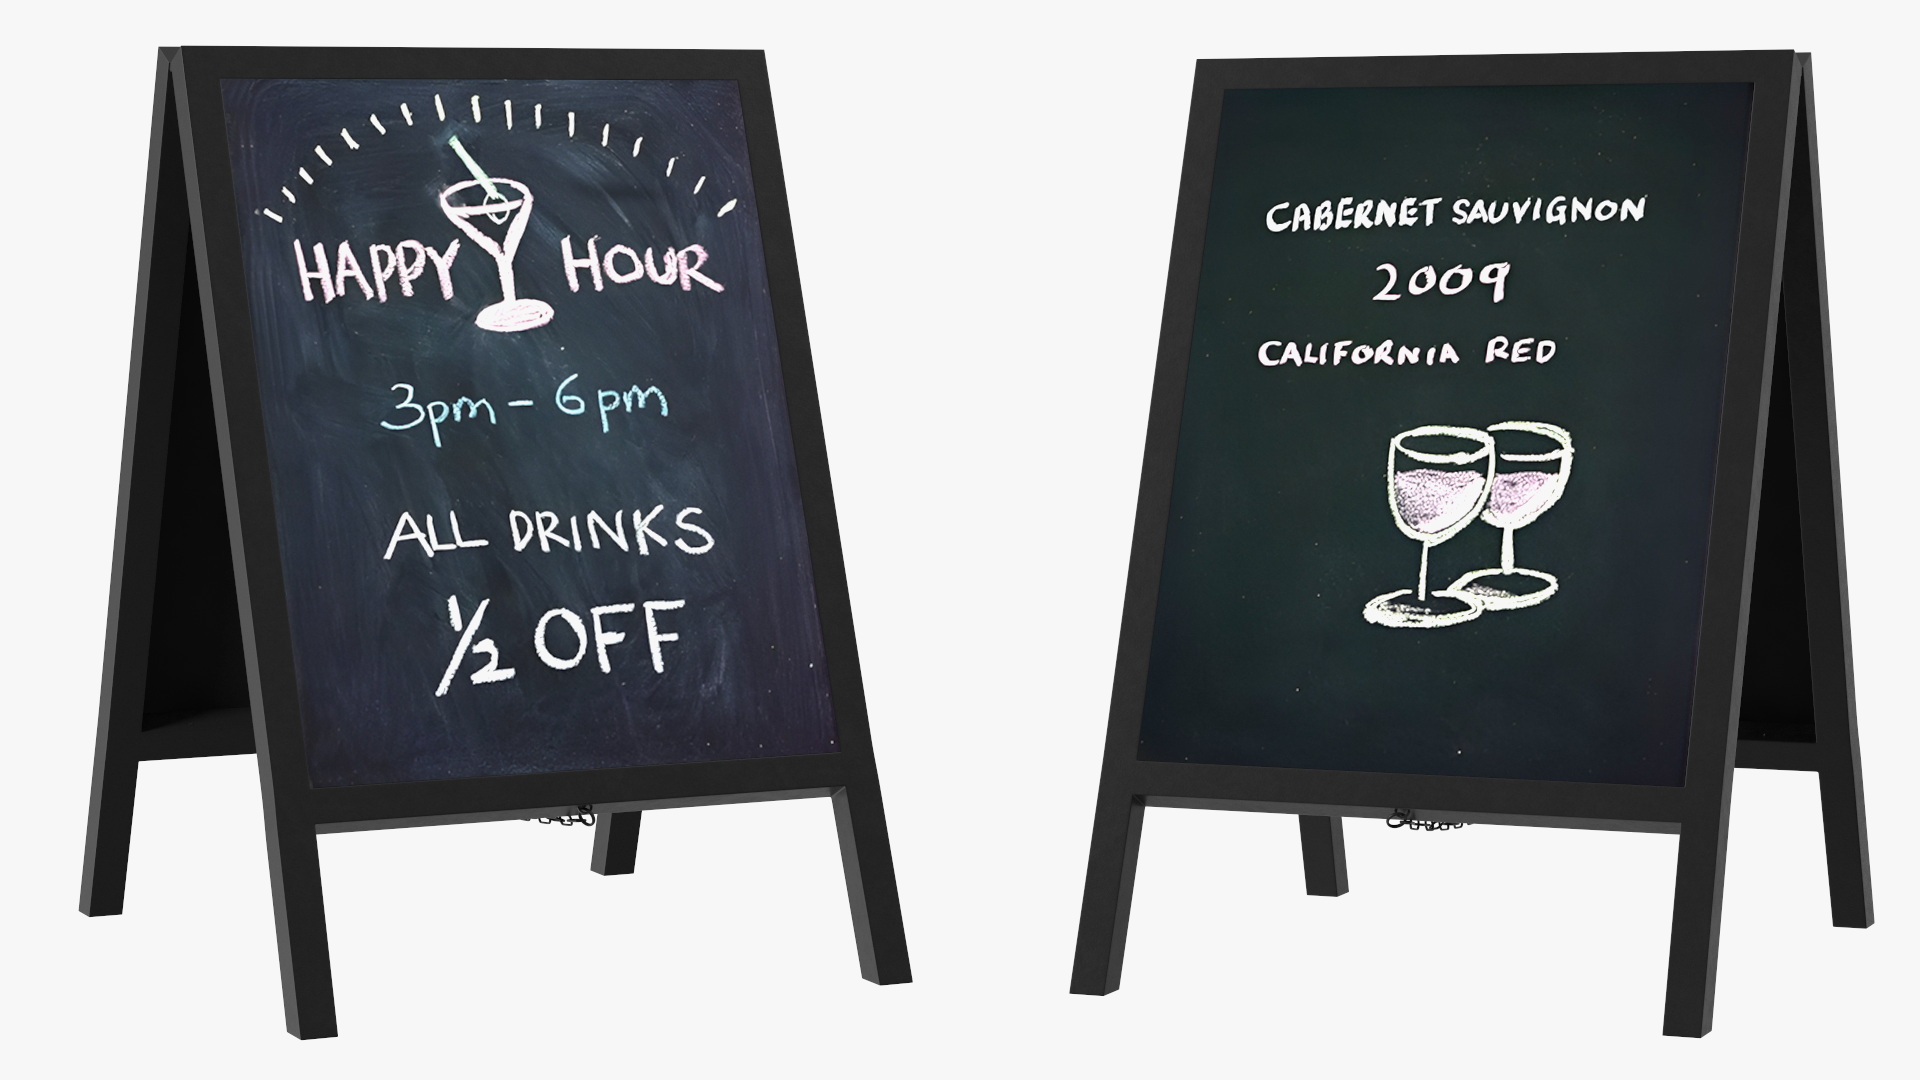 HAPPY HOUR
3pm - 6pm
ALL DRINKS
1/2 OFF
CABERNET SAUVIGNON
2009
CALIFORNIA RED